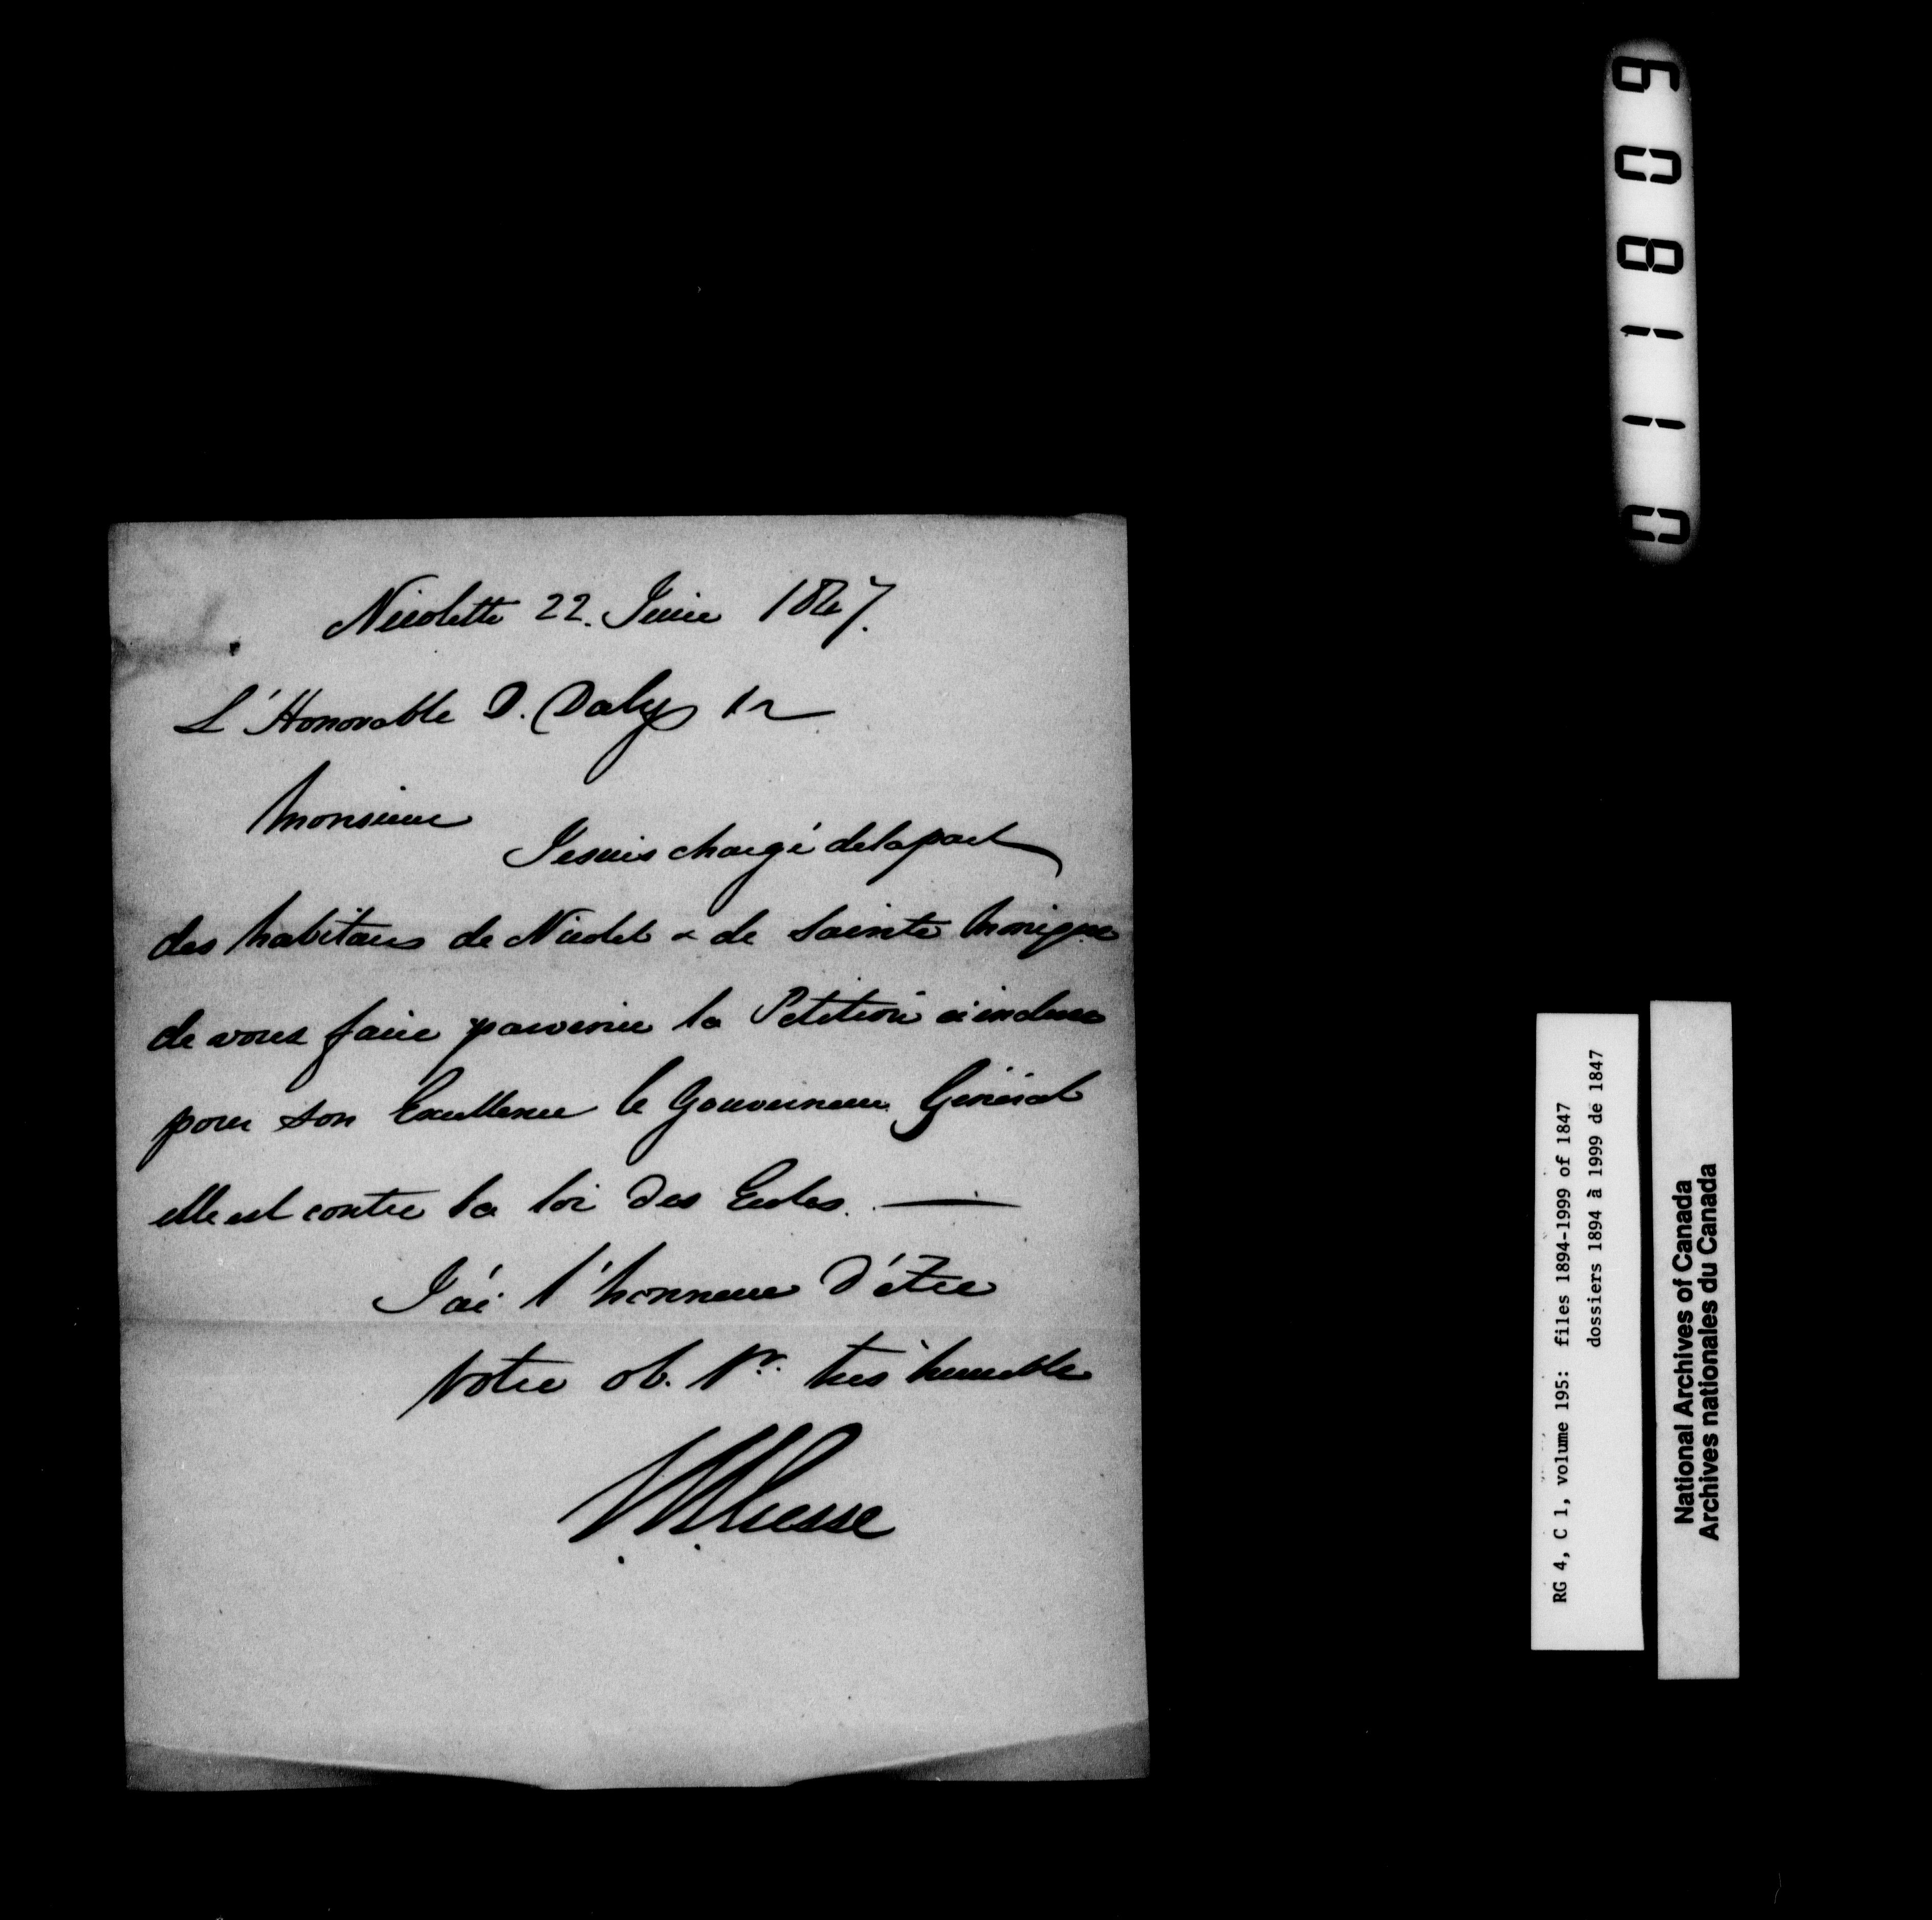 Nicolette 22. Juin 1847.
L'Honorable D. Daly
Monsieur
Je suis chargé de la part
des habitans de Nicolet & de Sainte Monique
de vous faire parvenir la Petition ci incluse
pour son Excellence le Gouverneur Général
elle est contre la loi des Ecoles. —
J'ai l'honneur d'être
Votre ob. Sr. très humble
011809
RG 4, C 1, volume 195: files 1894-1999 of 1847
dossiers 1894 à 1999 de 1847
National Archives of Canada
Archives nationales du Canada